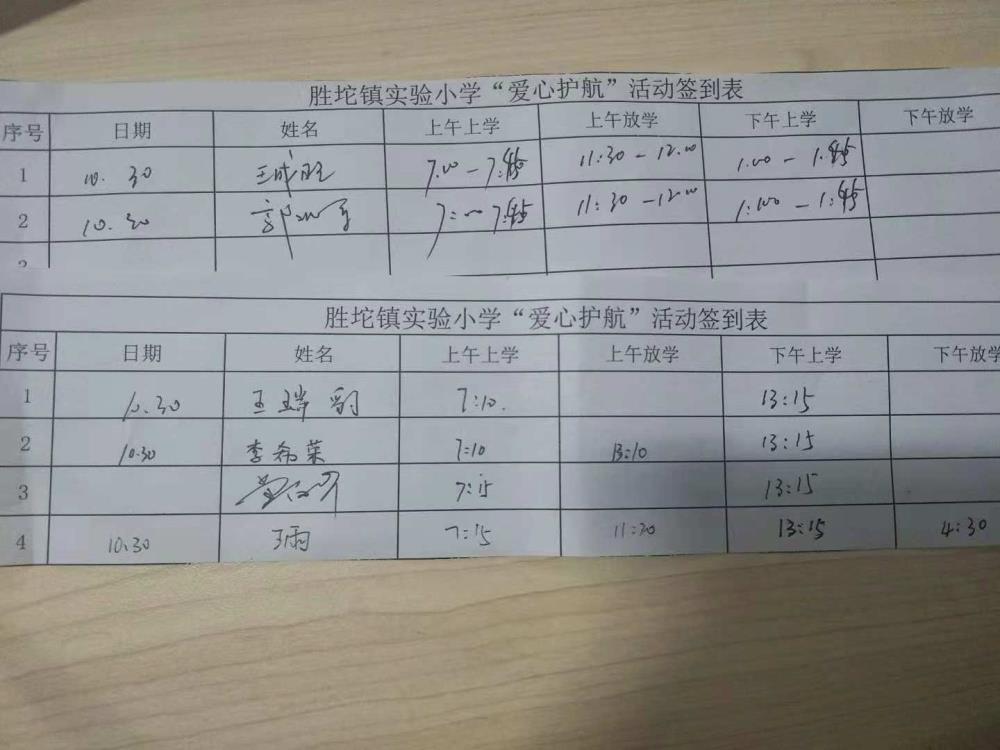 胜坨镇实验小学“爱心护航”活动签到表
序号 日期 姓名 上午上学 上午放学 下午上学 下午放学
1 10.30 王成旺 7.00-7:45 11:30-12.00 1.00-1.45
2 10.30 郭 7:00 7:45 11:30-12.00 1:00-1:45
胜坨镇实验小学“爱心护航”活动签到表
序号 日期 姓名 上午上学 上午放学 下午上学 下午放学
1 10.30 王瑞 7:10. 13:15
2 10.30 李希荣 7:10 13:10 13:15
3 7:15 13:15
4 10.30 王雨 7:15 11:30 13:15 4:30